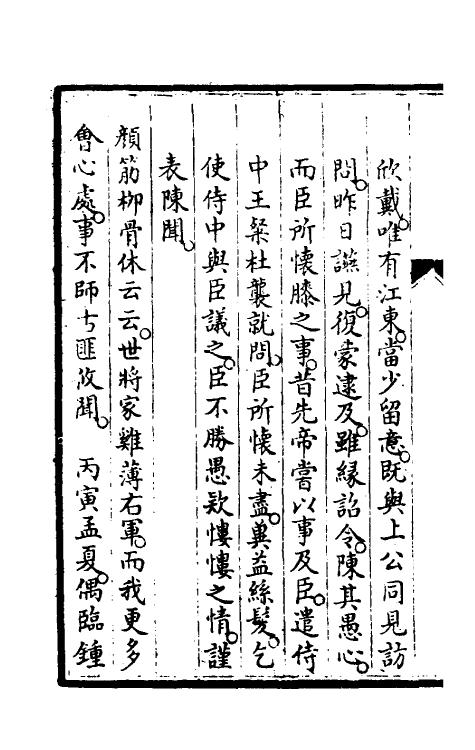 欣戴。唯有江東。當少留意。既與上公同見訪
問。昨日讌見。復蒙逮及。雖緣詔令。陳其愚心。
而臣所懷膝之事。昔先帝嘗以事及臣。遣侍
中王粲杜襲就問。臣所懷未盡。冀益絲髮。乞
使侍中與臣議之。臣不勝愚款慺慺之情。謹
表陳聞。
顏筋柳骨休云云。世將家雞薄右軍。而我更多
會心處。事不師古匪攸聞。 丙寅孟夏。偶臨鍾